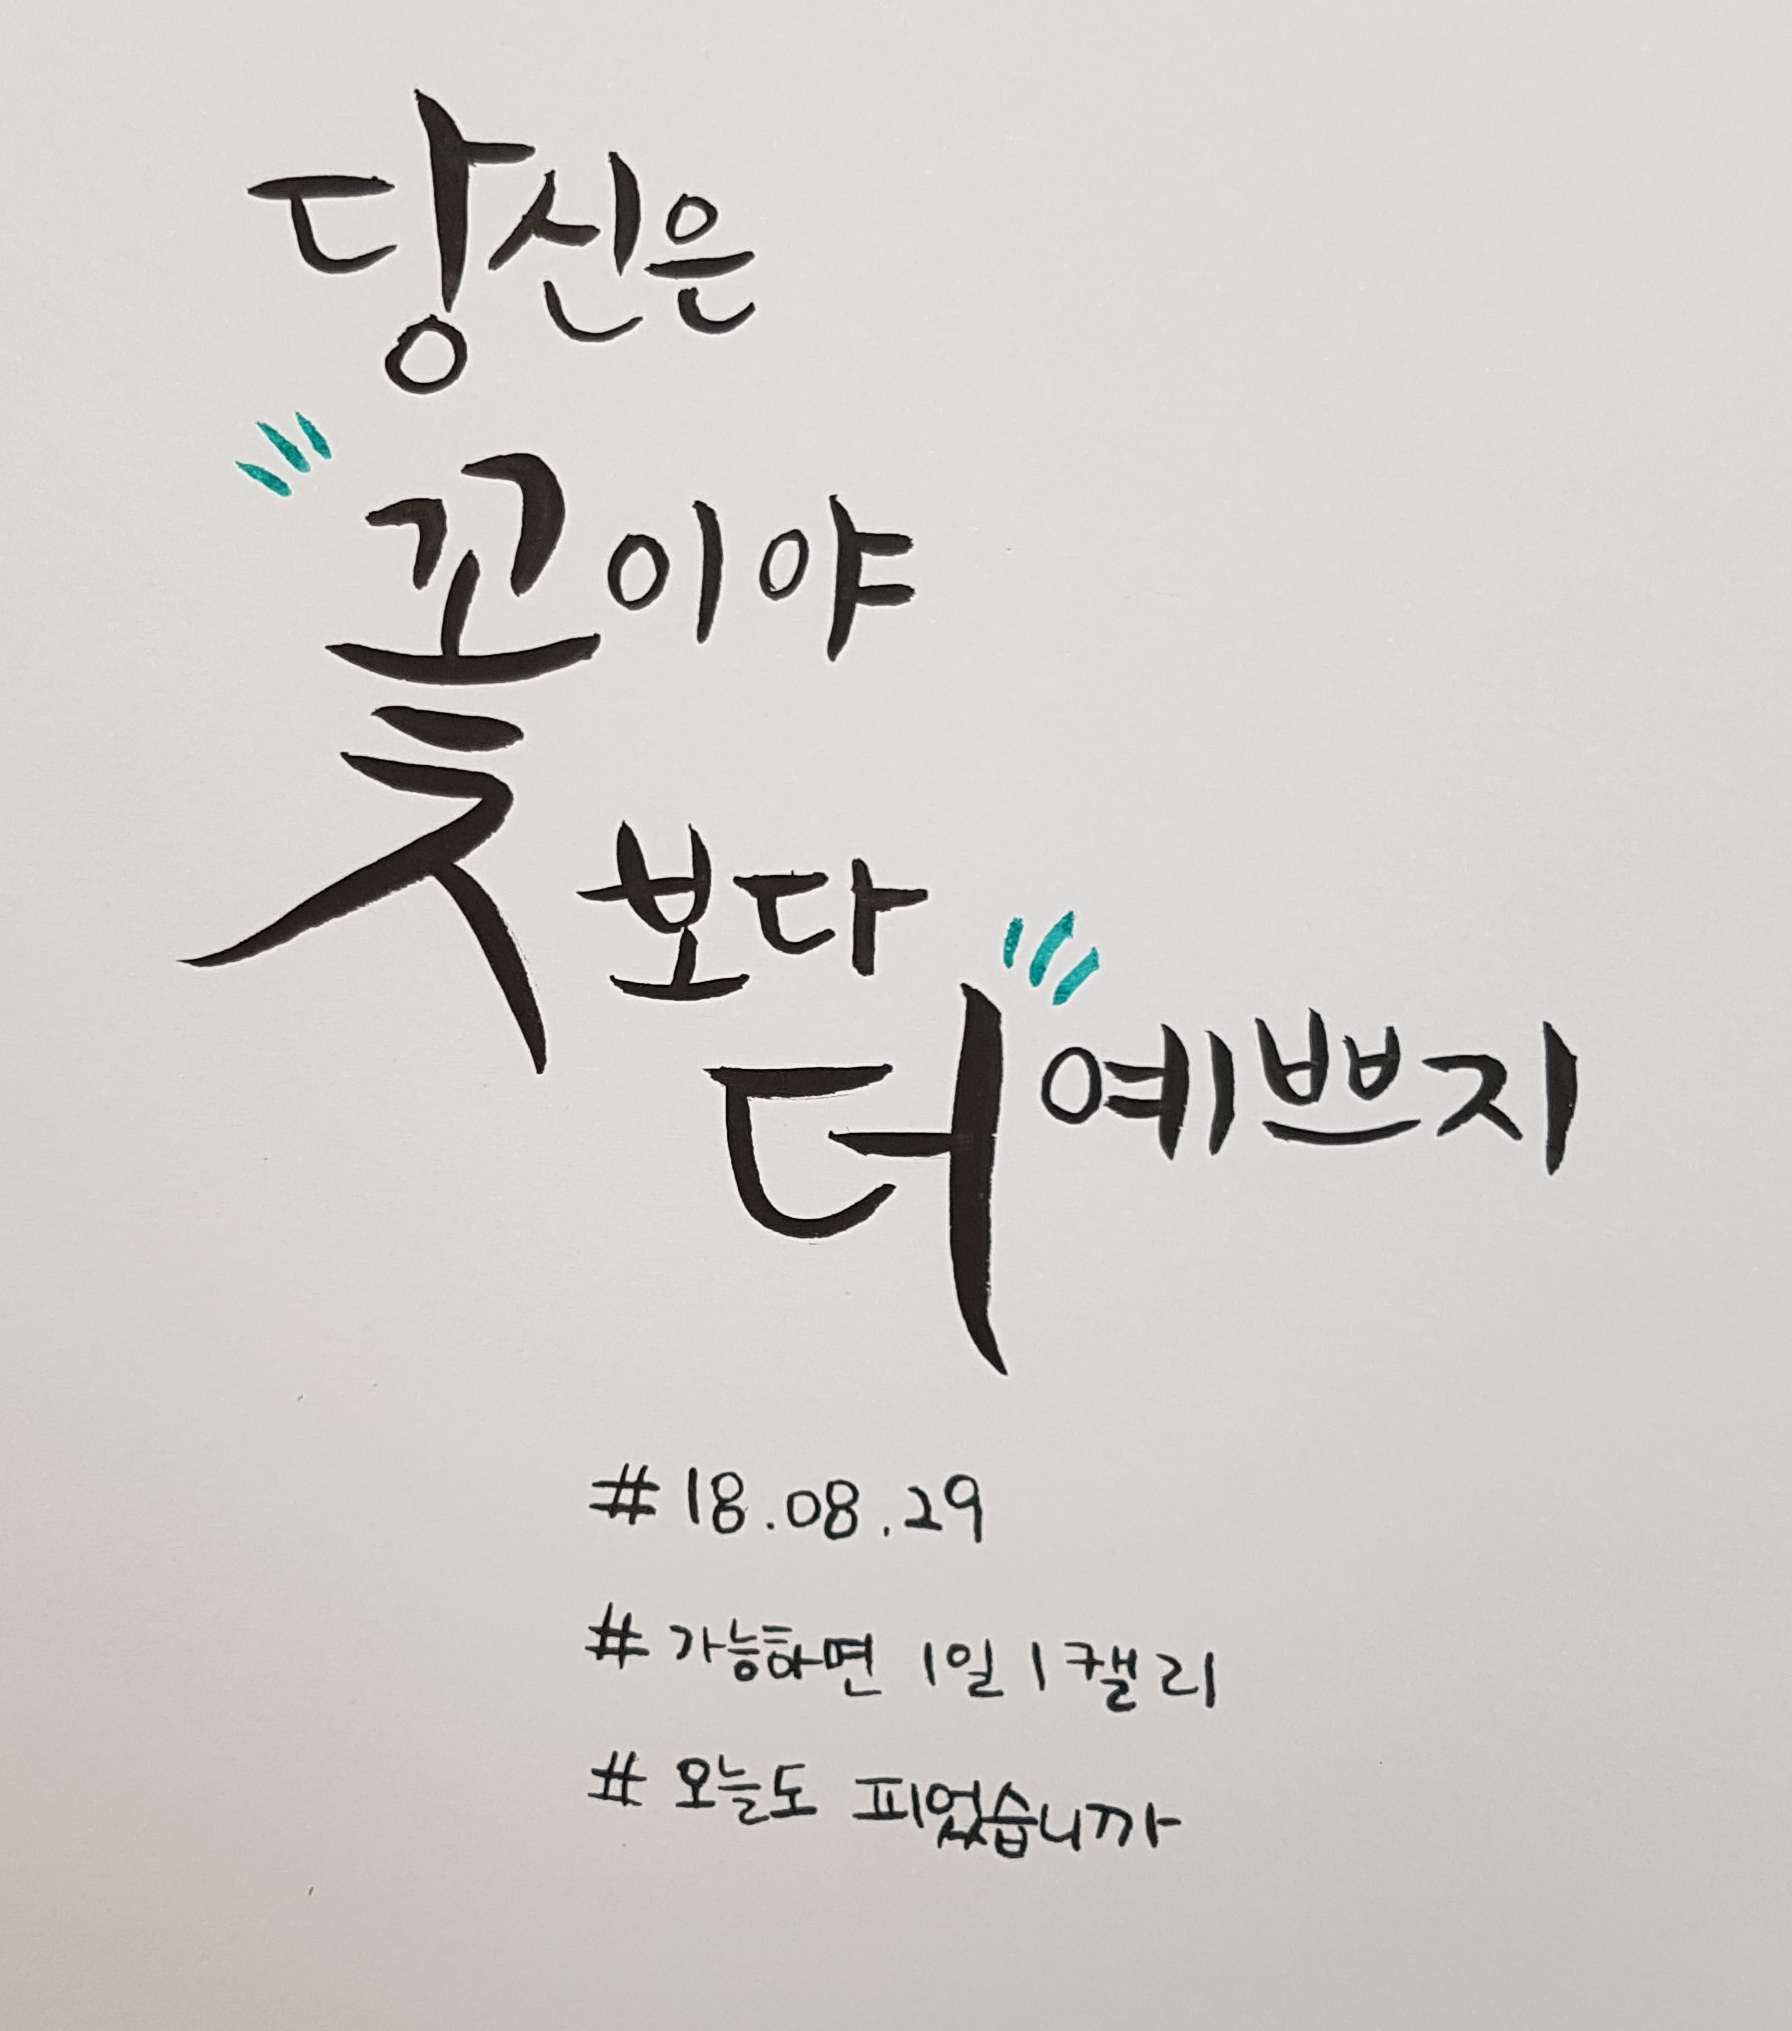 당신은
꽃이야
보다
더 예쁘지
# 18.08.29
# 가능하면 1일 1캘리
# 오늘도 피었습니까